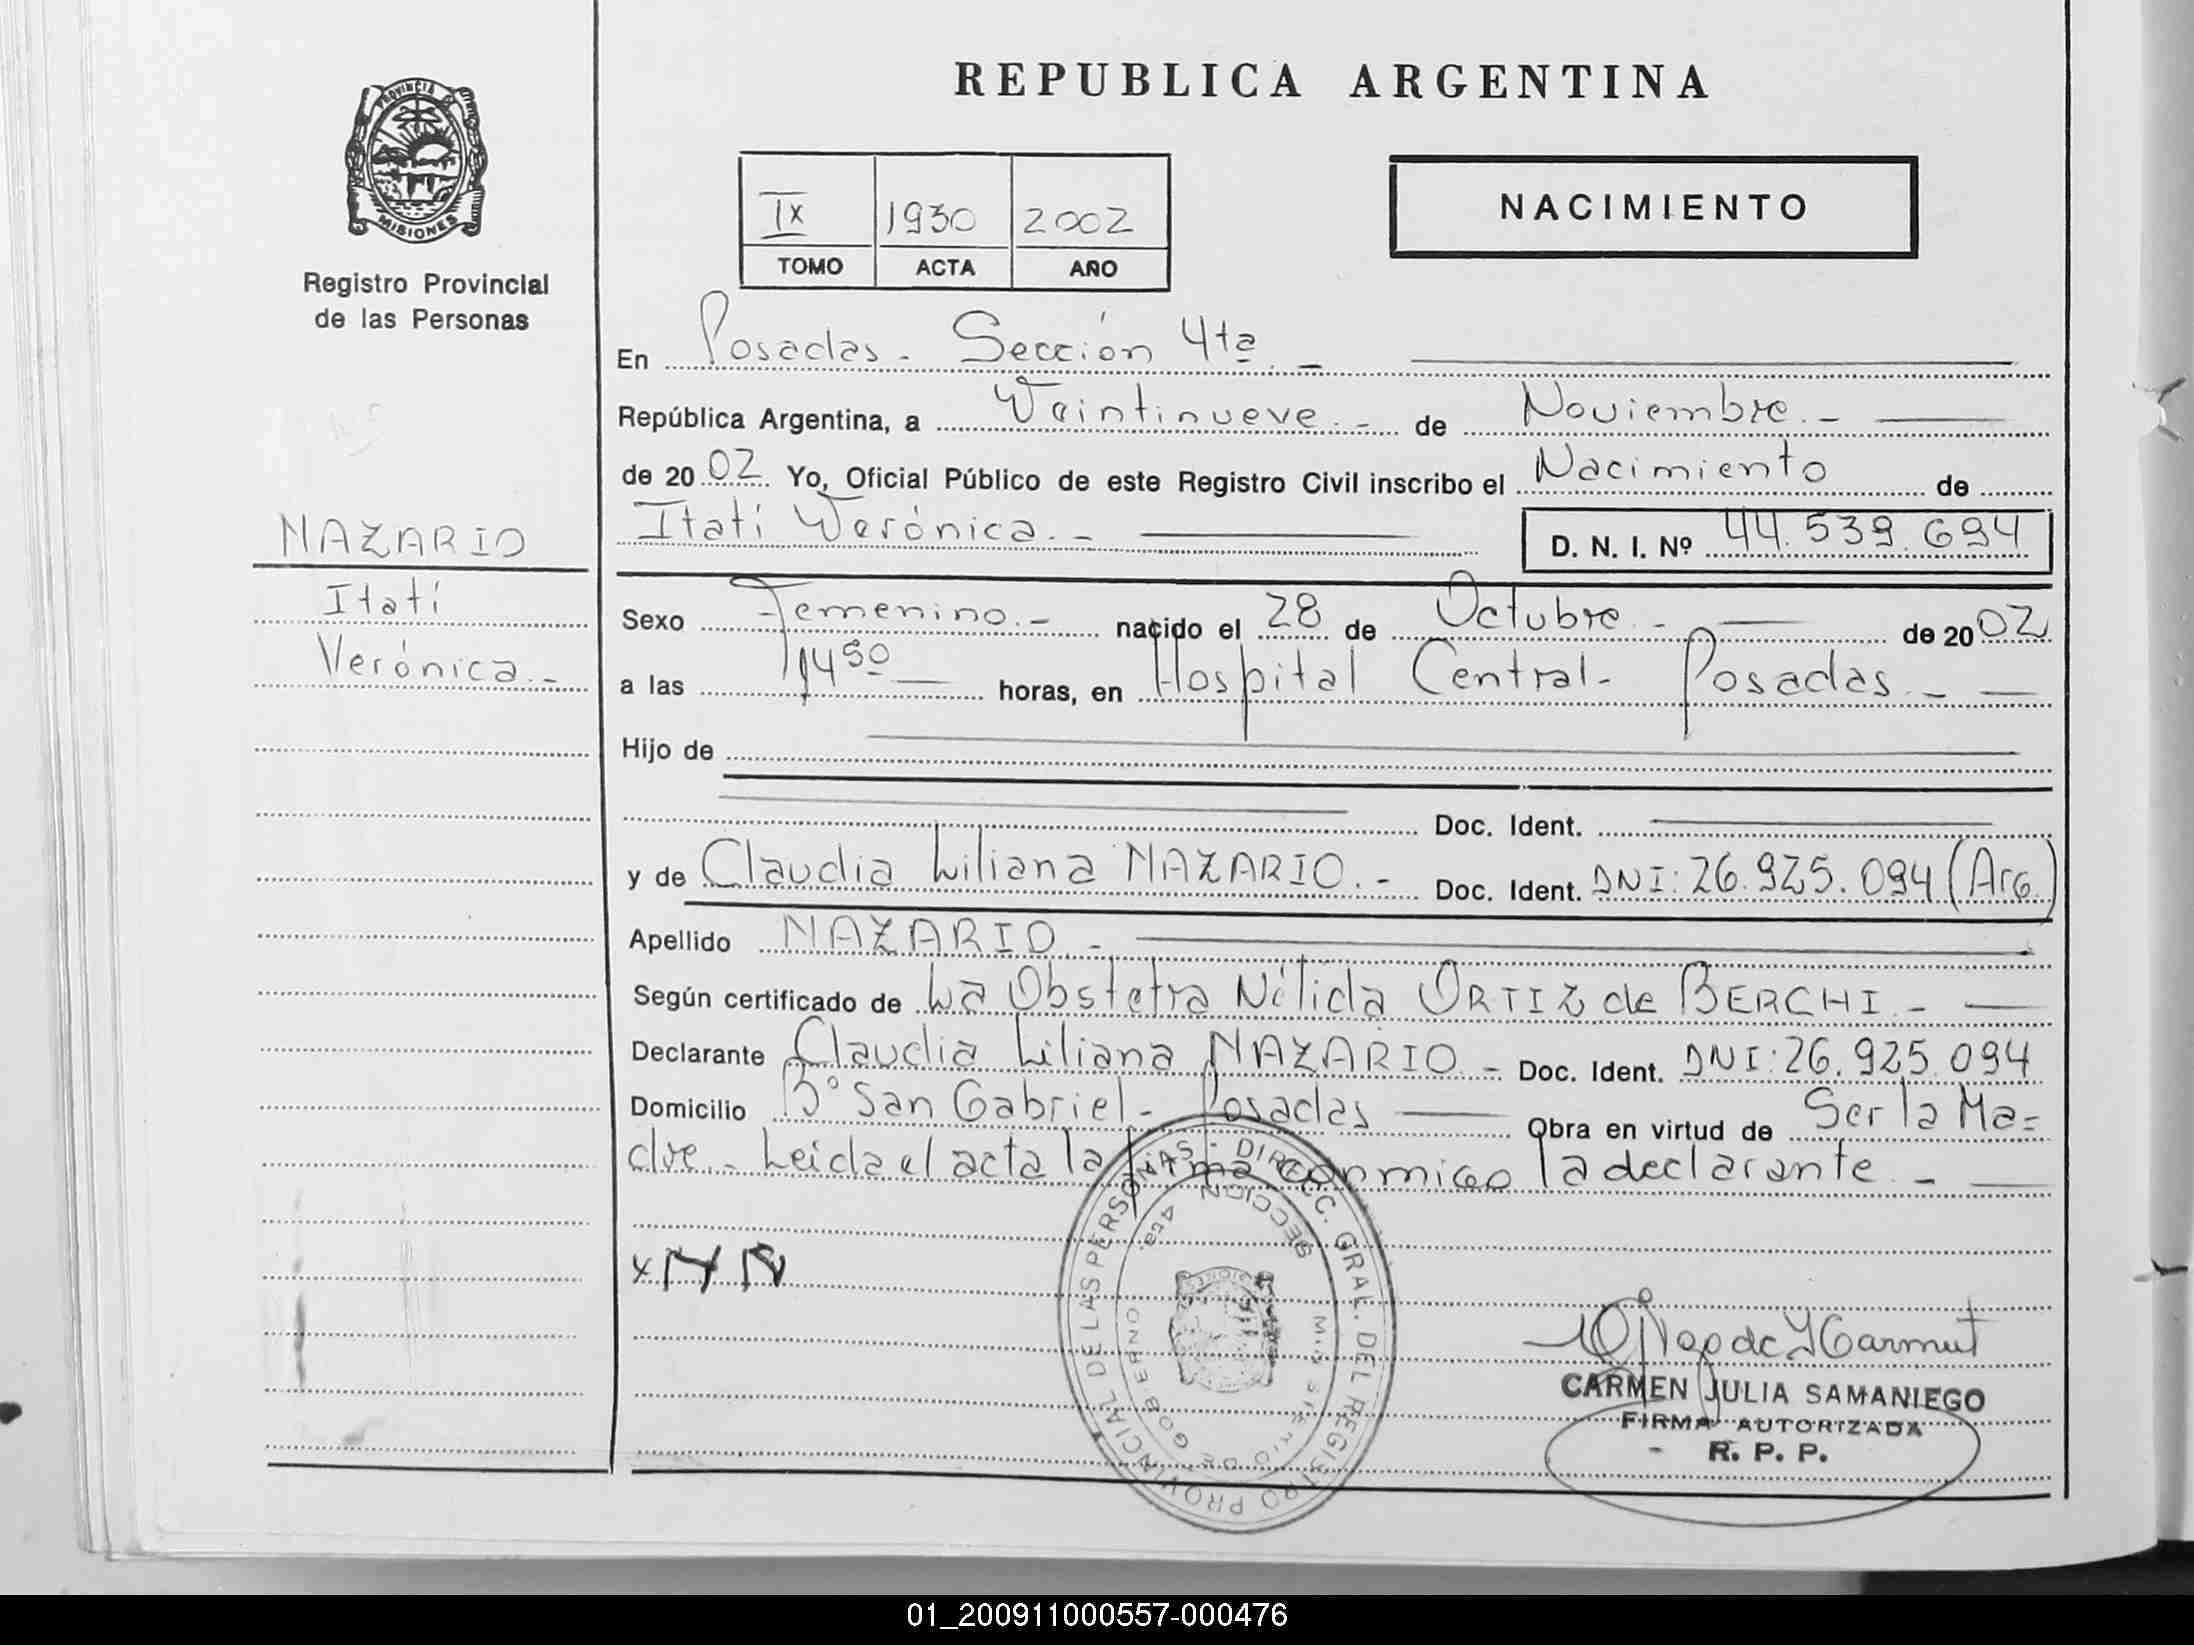 REPUBLICA ARGENTINA
PROVINCIA DE
MISIONES
Registro Provincial
de las Personas
IX 1930 2002
TOMO ACTA AÑO
NACIMIENTO
En Posadas - Sección 4ta. -
República Argentina, a Veintinueve. - de Noviembre. -
de 2002 Yo, Oficial Público de este Registro Civil inscribo el Nacimiento de
Itatí Verónica. - D. N. I. Nº 44.539.694
NAZARIO
Itatí
Verónica. -
Sexo Femenino. - nacido el 28 de Octubre - de 2002
a las 1450 horas, en Hospital Central - Posadas. -
Hijo de
Doc. Ident.
y de Claudia Liliana NAZARIO. - Doc. Ident. DNI: 26.925.094 (Arg.)
Apellido NAZARIO -
Según certificado de La Obstetra Nélida ORTIZ de BERCHI. -
Declarante Claudia Liliana NAZARIO - Doc. Ident. DNI: 26.925.094
Domicilio Bº San Gabriel - Posadas Obra en virtud de Ser la Ma=
dre - Leida el acta la firma conmigo la declarante. -
x N N
DIRECC. GRAL. DEL REGISTRO PROVINCIAL DE LAS PERSONAS -
SECCION 4ta.
MINISTERIO DE GOBIERNO
CARMEN JULIA SAMANIEGO
FIRMA AUTORIZADA
R. P. P.
01_200911000557-000476